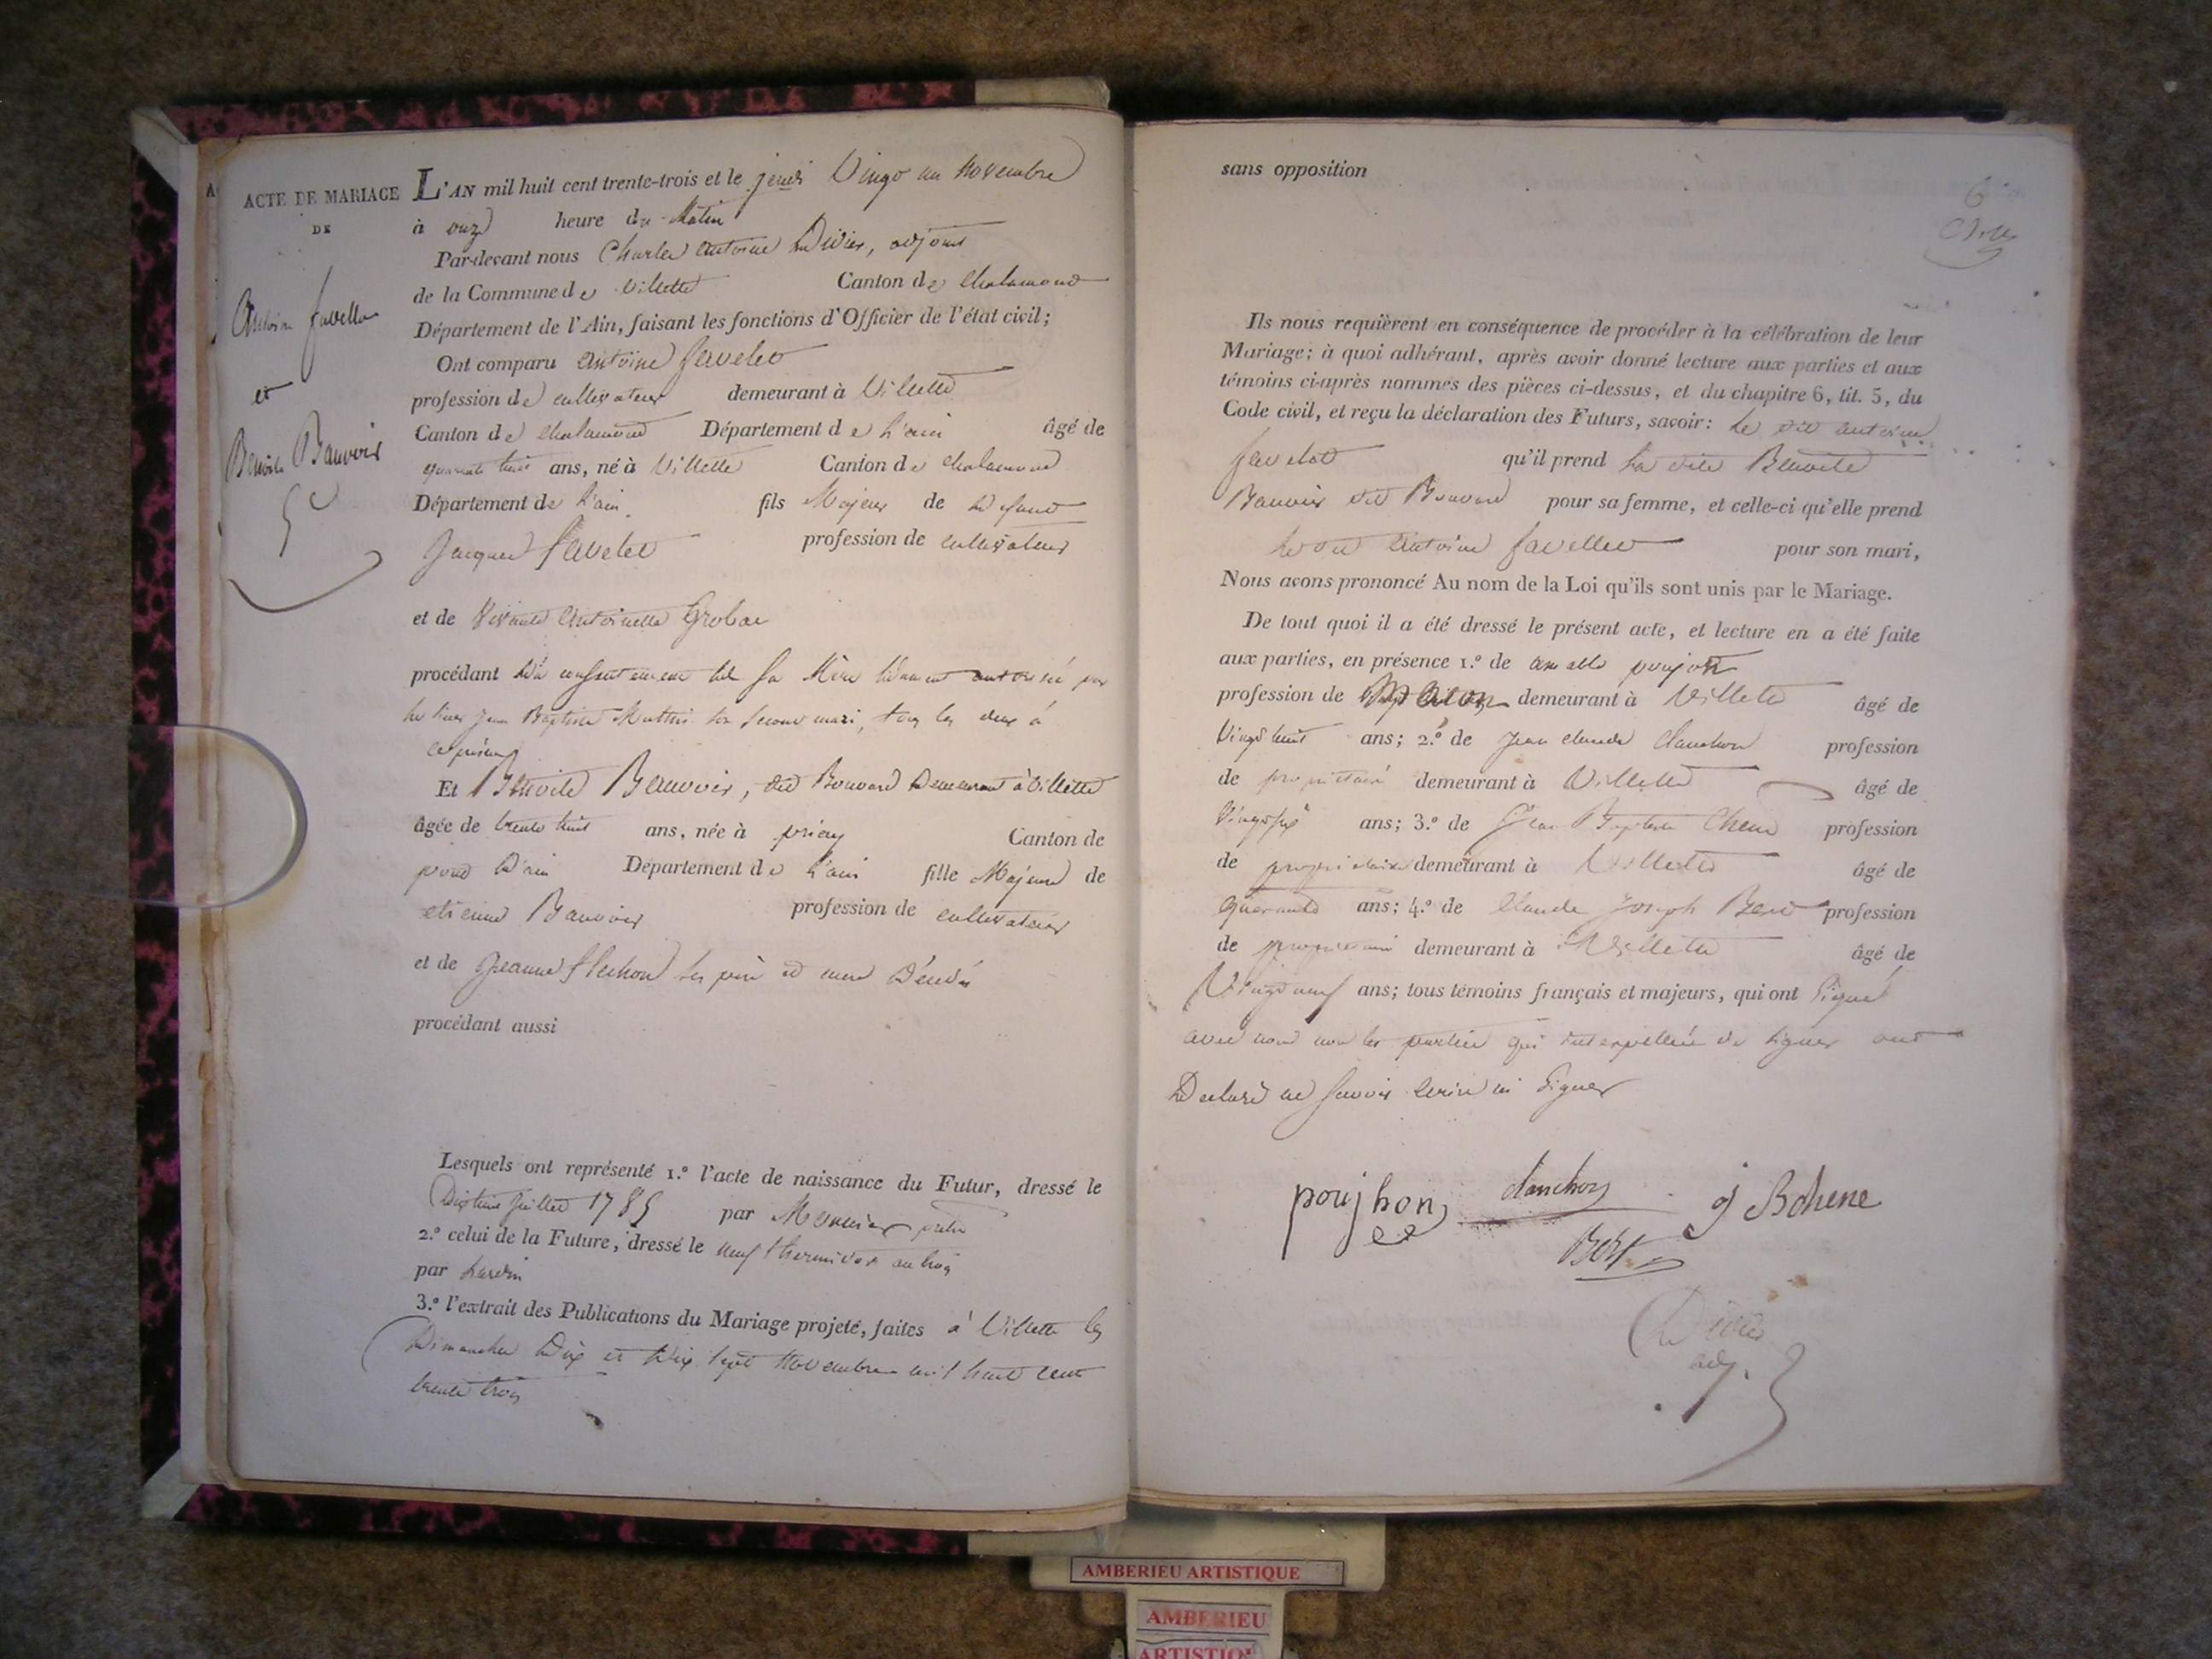 ACTE DE MARIAGE
DE
Antoine favellet
et
Benoite Bauvoir
5e
L'AN mil huit cent trente-trois et le jeudi Vingt un Novembre
à onze heure du Matin
Par-devant nous Charles antoine Divier, adjoint
de la Commune de Villette Canton de Chalamont
Département de l'Ain, faisant les fonctions d'Officier de l'état civil;
Ont comparu antoine favelet
profession de cultivateur demeurant à Villette
Canton de chalamont Département de L'ain âgé de
quarante huit ans, né à Villette Canton de chalamont
Département de L'ain fils Majeur de Defunt
Jacques favelet profession de cultivateur
et de vivante Antoinette Grobas
procédant du consentement de sa Mère dûment autorisée par
le sieur Jean Baptiste son second mari, tous les deux à
ce présent
Et Benoite Bauvoir, dit Bouvard Demeurant à Villette
âgée de trente huit ans, née à priay Canton de
pont D'ain Département de L'ain fille Majeure de
etienne Bauvoir profession de cultivateur
et de Jeanne flechon ses père et mere Décédés
procédant aussi
Lesquels ont représenté 1.º l'acte de naissance du Futur, dressé le
Dixhuit juillet 1785 par Meunier
2.º celui de la Future, dressé le neuf thermidor an trois
par
3.º l'extrait des Publications du Mariage projeté, faites à Villette les
Dimanches Dix et Dix sept Novembre mil huit cent
trente trois
sans opposition
6
Ils nous requièrent en conséquence de procéder à la célébration de leur
Mariage; à quoi adhérant, après avoir donné lecture aux parties et aux
témoins ci-après nommés des pièces ci-dessus, et du chapitre 6, tit. 5, du
Code civil, et reçu la déclaration des Futurs, savoir: Le dit antoine
favelet qu'il prend La dite Benoite
Bauvoir dit Bouvard pour sa femme, et celle-ci qu'elle prend
Le dit Antoine favellet pour son mari,
Nous avons prononcé Au nom de la Loi qu'ils sont unis par le Mariage.
De tout quoi il a été dressé le présent acte, et lecture en a été faite
aux parties, en présence 1.º de poujon
profession de Maçon demeurant à Villette âgé de
Vingt huit ans; 2.º de Jean claude Clanchon profession
de propriétaire demeurant à Villette âgé de
Vingt six ans; 3.º de Jean Baptiste Chene profession
de propriétaire demeurant à Villette âgé de
quarante ans; 4.º de Claude Joseph Bert profession
de propriétaire demeurant à Villette âgé de
Vingt neuf ans; tous témoins français et majeurs, qui ont Signé
avec nous non les parties qui interpellées de signer ont
Declaré ne savoir écrire ni Signer
poujhon
clanchon
J B chene
Bert
Divier
adj.
AMBERIEU ARTISTIQUE
AMBERIEU